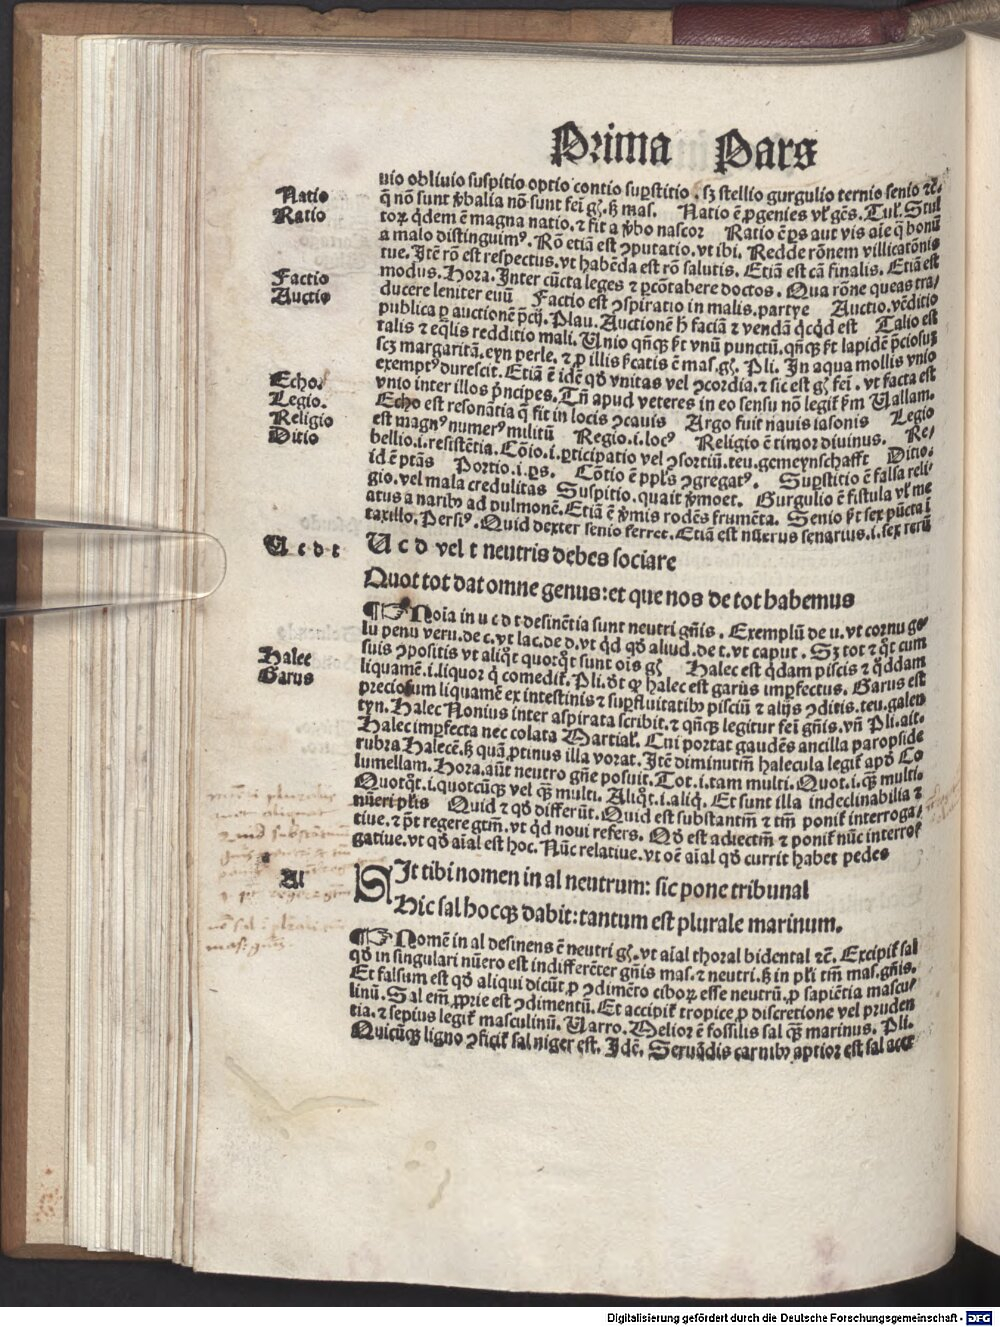 Prima Pars
uio obliuio suspitio optio contio suꝑstitio . sꝫ stellio gurgulio ternio senio ⁊c̃.
Natio
q̃ nō sunt ꝟbalia nō sunt fei gꝭ. ß mas. Natio ē ꝓgenies vł gēs. Tul. Stul
Ratio
toꝝ qdem ē magna natio. ⁊ fit a ꝟbo nascor Ratio ē ꝑs aut vis aīe q̃ bonū
a malo distinguimꝰ. Rō etiā est ꝯputatio. vt ibi. Redde rōnem villicatōnis
tue. Itē rō est respectus. vt habēda est rō salutis. Etiā est cā finalis. Etiā est
Factio
modus. Hora. Inter cūcta leges ⁊ ꝑcōtabere doctos. Qua rōne queas tra/
Auctio
ducere leniter euū Factio est ꝯspiratio in malis. partye Auctio. vēditio
publica ꝑ auctionē p̄cij. Plau. Auctionē h̄ faciā ⁊ vendā qcqd est Talio est
talis ⁊ eq̄lis redditio mali. Unio qn̄qꝫ s̄t vnū punctū. qn̄qꝫ s̄t lapidē p̄ciosuꝫ
scꝫ margaritā. eyn perle. ⁊ ꝓ illis s̄catis ē mas. gꝭ. Pli. In aqua mollis vnio
exemptꝰ durescit. Etiā ē idē qd̄ vnitas vel ꝯcordia. ⁊ sic est gꝭ fei . vt facta est
Echo.
vnio inter illos p̄ncipes. Tn̄ apud veteres in eo sensu nō legit̃ s̄m Uallam.
Legio.
Echo est resonātia q̃ fit in locis ꝯcauis Argo fuit nauis iasonis Legio
Religio
est magnꝰ numerꝰ militū Regio .i. locꝰ Religio ē timor diuinus. Re/
Ditio
bellio .i. resistētia. Cōio .i. ꝑticipatio vel ꝯsortiū. teu. gemeynschafft Ditio.
id ē ptās Portio .i. ꝑs. Cōtio ē ppl's ꝯgregatꝰ. Suꝑstitio ē falsa reli/
gio. vel mala credulitas Suspitio. quait ꝟmoet. Gurgulio ē fistula vł me
atus a naribꝰ ad pulmonē. Etiā ē ꝟmis rodēs frumēta. Senio s̄t sex pūcta ī
taxillo. Persiꝰ. Quid dexter senio ferret. Etiā est nūerus senarius .i. sex rerū
U c d t
U c d vel t neutris debes sociare
Quot tot dat omne genus: et que nos de tot habemus
¶☞Noīa in u c d t desinētia sunt neutri gn̄is . Exemplū de u. vt cornu ge
lu penu veru. de c. vt lac. de d. vt qd qd̄ aliud. de t. vt caput . Sꝫ tot ⁊ qt̄ cum
Halec
suis ꝯpositis vt aliqt̄ quotqt̄ sunt oīs gꝭ Halec est qdam piscis ⁊ qddam
Garus
liquamē .i. liquor q̄ comedit̃. Pli. dt̄ ꝙ halec est garus imꝑfectus. Garus est
preciosum liquamē ex intestinis ⁊ suꝑfluitatibꝰ pisciū ⁊ alijs ꝯditis. teu. galen
tyn. Halec Nonius inter aspirata scribit. ⁊ qn̄qꝫ legitur fei gn̄is. vn̄ Pli. ait.
Halec imꝑfecta nec colata Martial̃. Cui portat gaudēs ancilla paropside
rubra Halecē. ß quā ꝓtinus illa vorat. Itē diminutiū halecula legit̃ apd̄ Co
lumellam. Hora. aūt neutro gn̄e posuit. Tot .i. tam multi. Quot .i. qꝫ multi.
Quotqt̄ .i. quotcūqꝫ vel qꝫ multi. Aliqt̄ .i. aliq̄. Et sunt illa indeclinabilia ⁊
nūeri plīs Quid ⁊ qd̄ differūt. Quid est substantiū ⁊ tm̄ ponit̃ interroga/
tiue. ⁊ pōt regere gtm̄. vt qd noui refers. Qd̄ est adiectiū ⁊ ponit̃ nūc interro/
gatiue. vt qd̄ aīal est hoc. Nūc relatiue. vt oē aīal qd̄ currit habet pedes
Al
SIt tibi nomen in al neutrum: sic pone tribunal
Hic sal hocqꝫ dabit: tantum est plurale marinum.
¶☞Nomē in al desinens ē neutri gꝭ. vt aīal thoral bidental ⁊c̃. Excipit̃ sal
qd̄ in singulari nūero est indifferēter gn̄is mas. ⁊ neutri. ß in pl̄i tm̄ mas. gn̄is.
Et falsum est qd̄ aliqui dicūt ꝓ ꝯdimēto ciboꝝ esse neutrū. ꝓ sapiētia mascu/
linū. Sal em̄ ꝓprie est ꝯdimentū. Et accipit̃ tropice ꝓ discretione vel pruden
tia. ⁊ sepius legit̃ masculinū. Uarro. Melior ē fossilis sal qꝫ marinus. Pli.
Quicūqꝫ ligno ꝯficit̃ sal niger est. Idē. Seruādis carnibꝰ aptior est sal acer
Digitalisierung gefördert durch die Deutsche Forschungsgemeinschaft - DFG